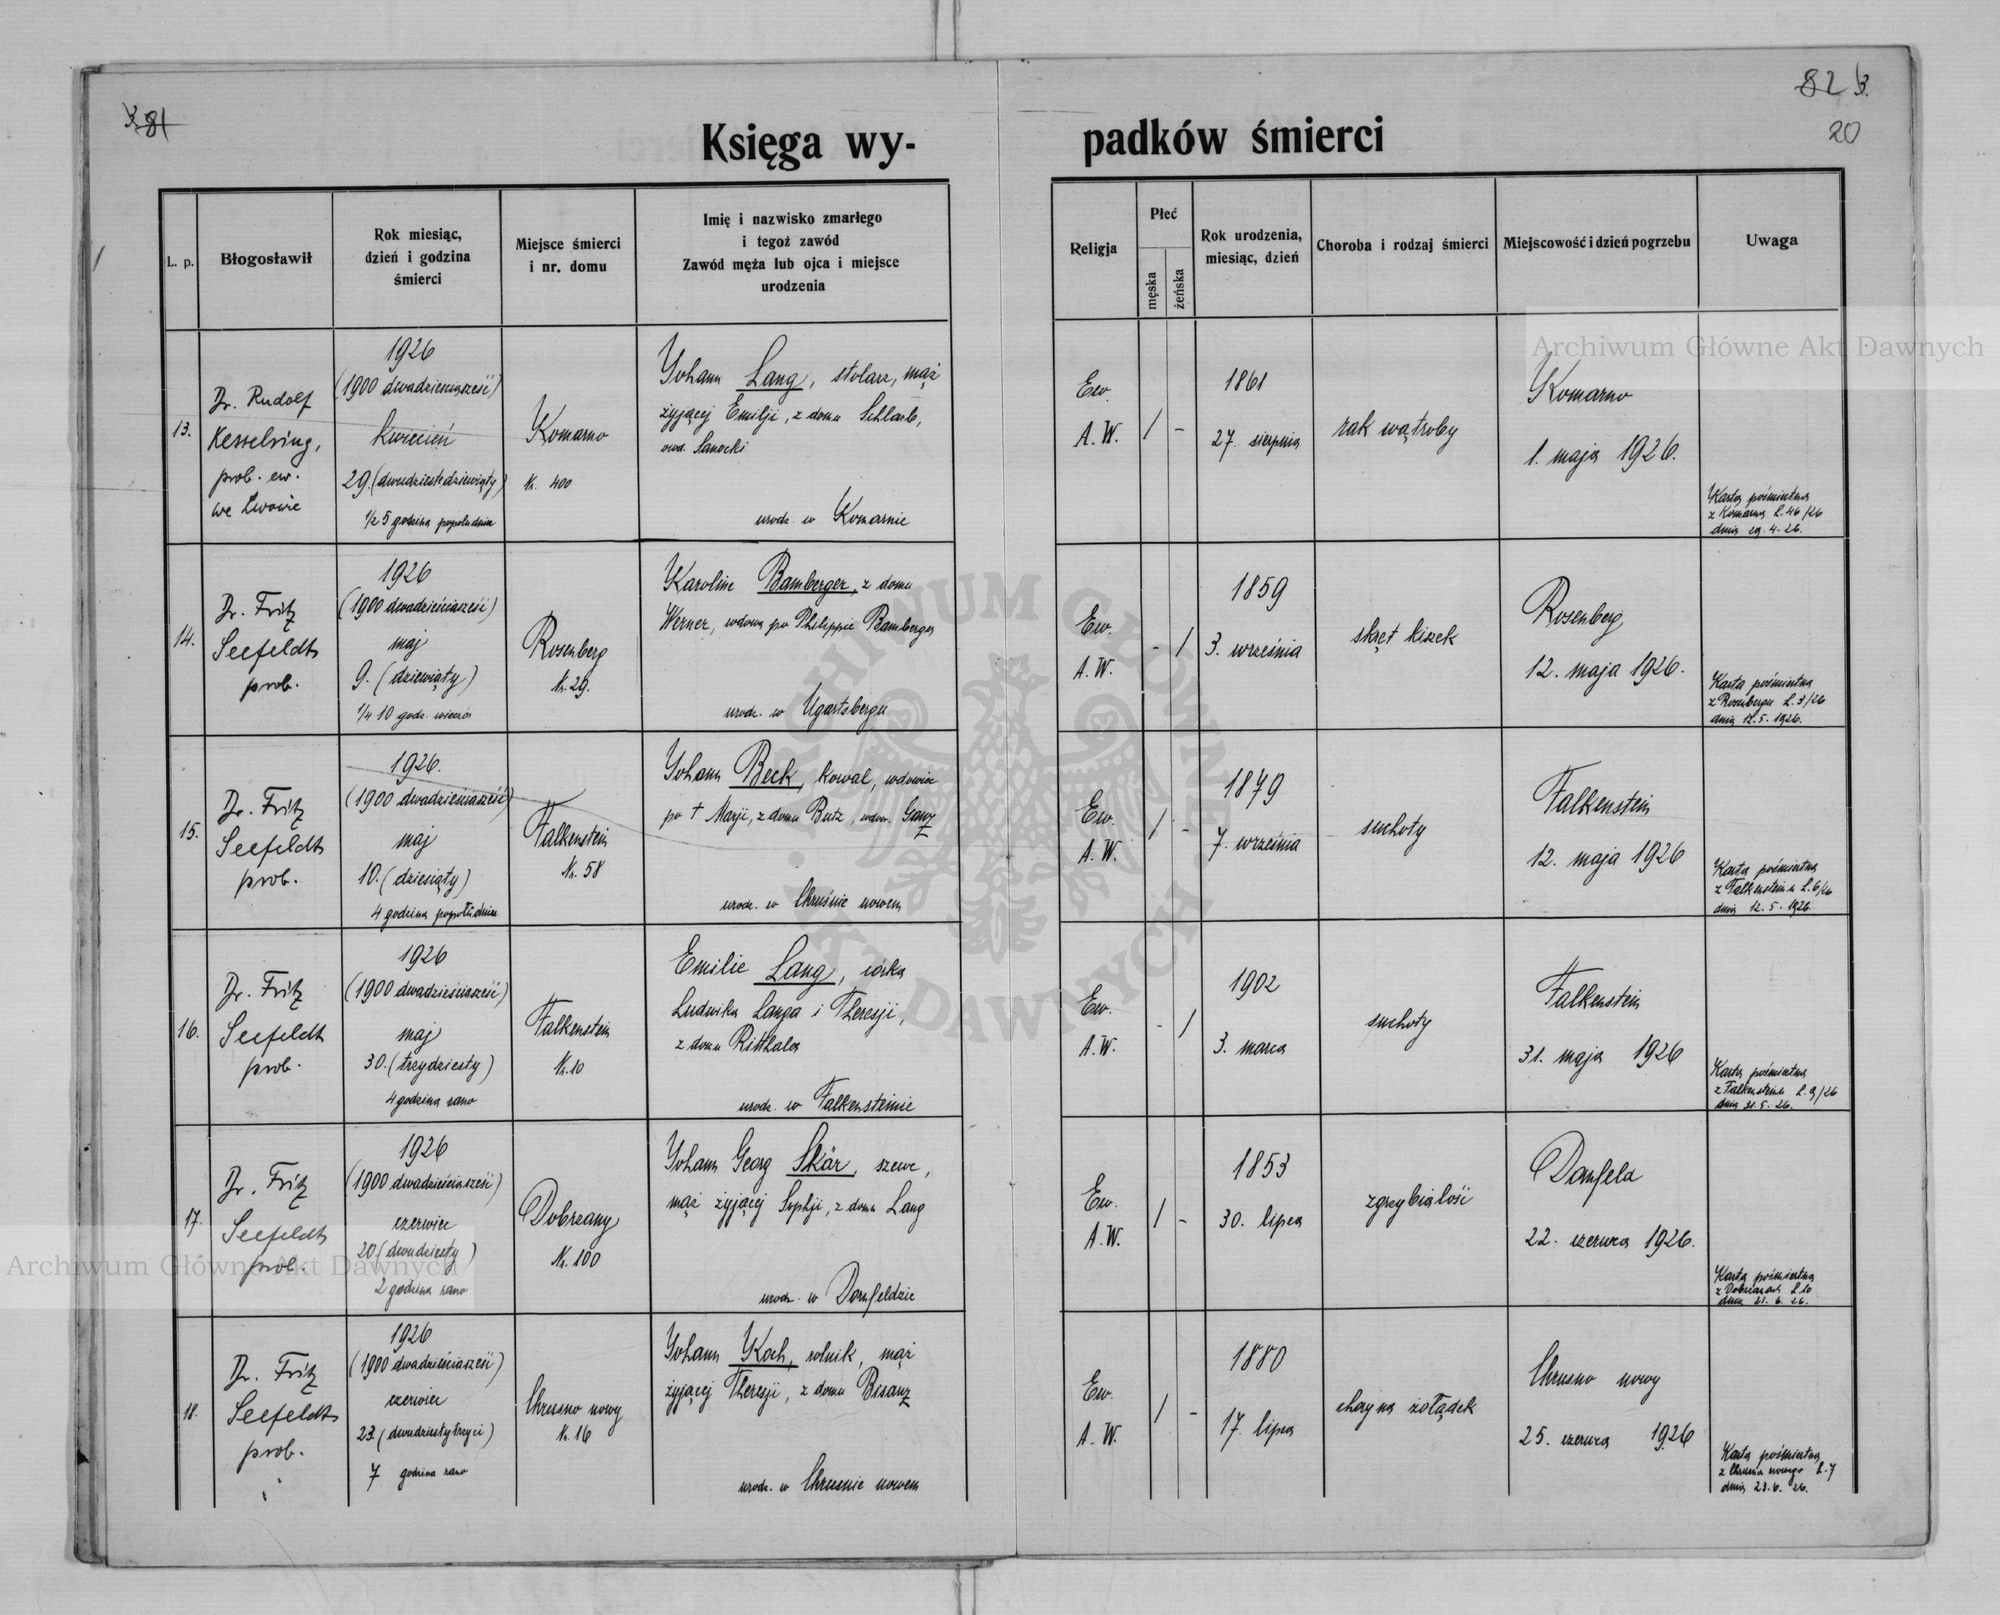 3.
81
82
3.
20
Księga wy-
padków śmierci
L. p.
Błogosławił
Rok miesiąc,
dzień i godzina
śmierci
Miejsce śmierci
i nr. domu
Imię i nazwisko zmarłego
i tegoż zawód
Zawód męża lub ojca i miejsce
urodzenia
Religja
Płeć
męska
żeńska
Rok urodzenia,
miesiąc, dzień
Choroba i rodzaj śmierci
Miejscowość i dzień pogrzebu
Uwaga
13.
Dr. Rudolf
Kesselring,
prob. ew.
we Lwowie
1926
(1900 dwadzieściasześć)
kwiecień
29. (dwudziestedziewiąty)
1/2 5 godzina popołudniu
Komarno
Nr. 400
Johann Lang, stolarz, mąż
żyjącej Emilji, z domu Schlarb,
owd. Sanocki
urodz. w Komarnie
Ew.
A. W.
/ -
1861
27. sierpnia
rak wątroby
Komarno
1. maja 1926.
Karta pośmiertna
z Komarna L. 46/26
dnia 29. 4. 26.
14.
Dr. Fritz
Seefeldt
prob.
1926
(1900 dwadzieściasześć)
maj
9. (dziewiąty)
1/4 10 godz. wieczór
Rosenberg
Nr. 29.
Karoline Bamberger, z domu
Werner, wdowa po Philippie Bamberger
urodz. w Ugartsbergu
Ew.
A. W.
- /
1859
3. września
skręt kiszek
Rosenberg
12. maja 1926.
Karta pośmiertna
z Rosenbergu L. 3/26
dnia 12. 5. 1926.
15.
Dr. Fritz
Seefeldt
prob.
1926.
(1900 dwadzieściasześć)
maj
10. (dziesiąty)
4 godzina popołudniu
Falkenstein
Nr. 58
Johann Beck, kowal, wdowiec
po † Marji, z domu Butz, wdow. Ganz
urodz. w Chruśnie nowem
Ew.
A. W.
/ -
1879
7. września
suchoty
Falkenstein
12. maja 1926
Karta pośmiertna
z Falkensteina L. 6/26
dnia 12. 5. 1926.
16.
Dr. Fritz
Seefeldt
prob.
1926
(1900 dwadzieściasześć)
maj
30. (trzydziesty)
4 godzina rano
Falkenstein
Nr. 10
Emilie Lang, córka
Ludwika Langa i Theresji,
z domu Ritthaler
urodz. w Falkensteinie
Ew.
A. W.
- /
1902
3. marca
suchoty
Falkenstein
31. maja 1926
Karta pośmiertna
z Falkensteina L. 9/26
dnia 31. 5. 26.
17.
Dr. Fritz
Seefeldt
prob.
1926
(1900 dwadzieściasześć)
czerwiec
20. (dwudziesty)
2 godzina rano
Dobrzany
Nr. 100
Johann Georg Skär, szewc,
mąż żyjącej Sophji, z domu Lang
urodz. w Dornfeldzie
Ew.
A. W.
/ -
1853
30. lipca
zgrzybiałość
Dornfeld
22. czerwca 1926.
Karta pośmiertna
z Dobrzan L. 10
dnia 21. 6. 26.
18.
Dr. Fritz
Seefeldt
prob.
1926
(1900 dwadzieściasześć)
czerwiec
23. (dwudziestytrzeci)
7 godzina rano
Chrusno nowy
Nr. 16
Johann Koch, rolnik, mąż
żyjącej Theresji, z domu Bisanz
urodz. w Chrusnie nowem
Ew.
A. W.
/ -
1880
17. lipca
chory na żołądek
Chrusno nowy
25. czerwca 1926
Karta pośmiertna
z Chrusna nowego L. 7
dnia 23. 6. 26.
Archiwum Główne Akt Dawnych
Archiwum Główne Akt Dawnych
ARCHIWUM GŁÓWNE AKT DAWNYCH